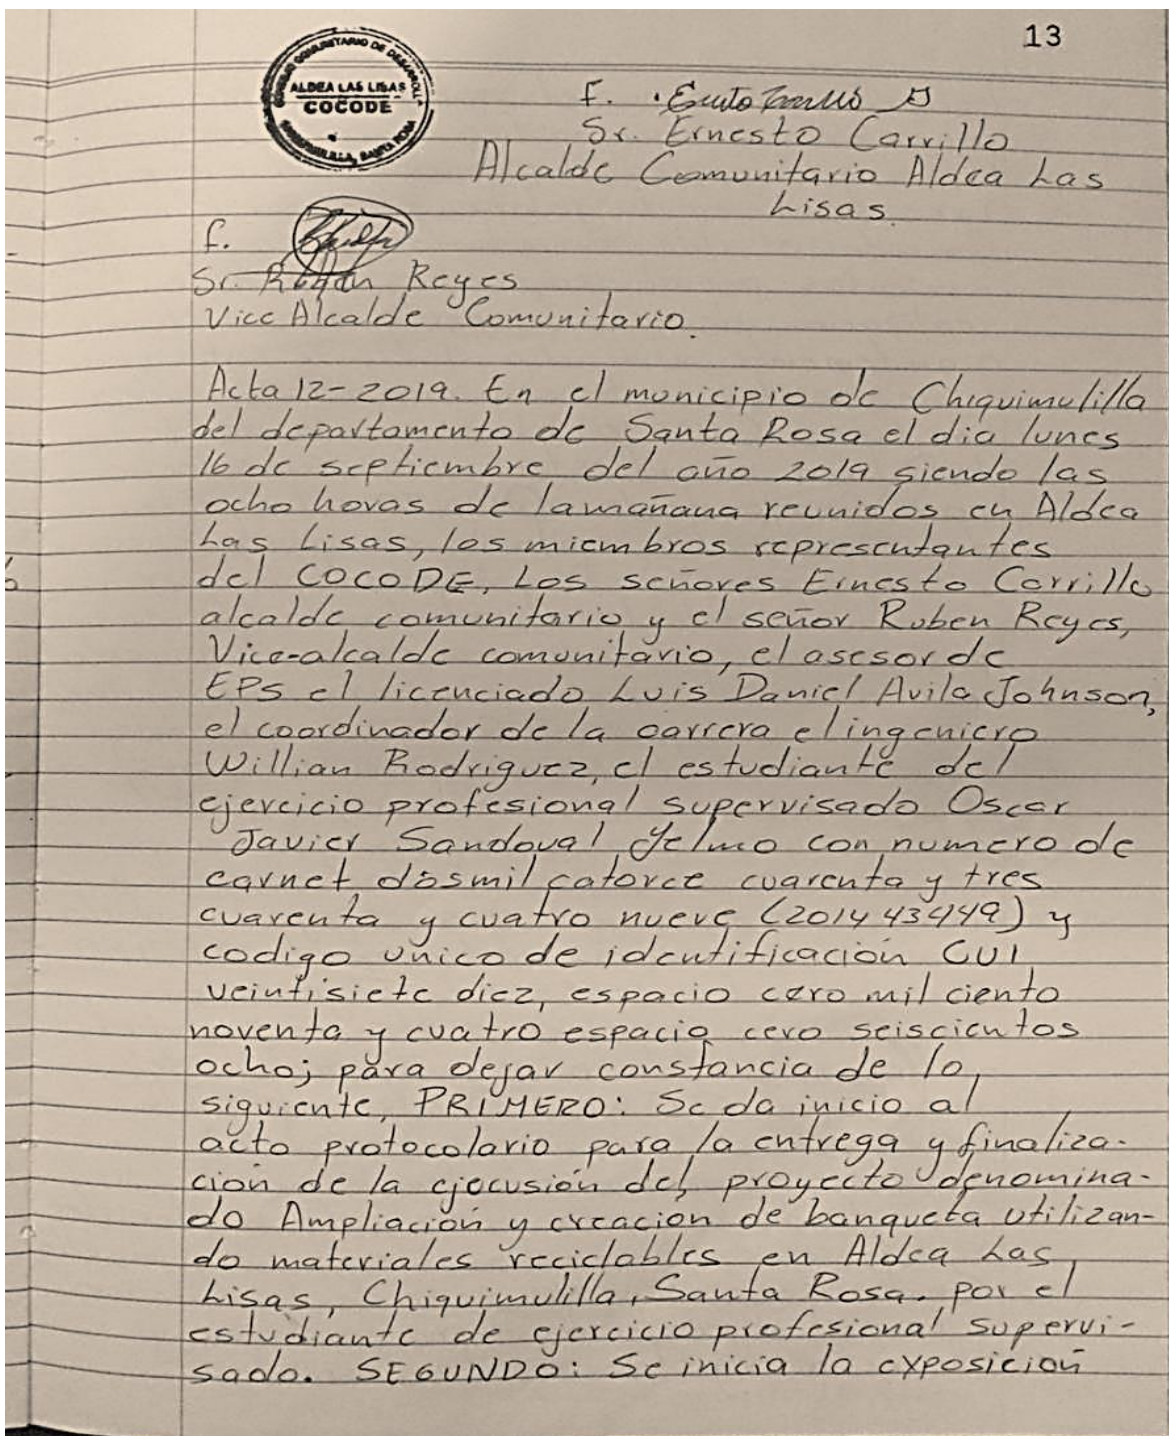 13
CONSEJO COMUNITARIO DE DESARROLLO
ALDEA LAS LISAS
COCODE
CHIQUIMULILLA, SANTA ROSA
F.
Sr. Ernesto Carrillo
Alcalde Comunitario Aldea Las
Lisas
f.
Sr. Reyes
Vice Alcalde Comunitario.
Acta 12-2019. En el municipio de Chiquimulilla
del departamento de Santa Rosa el dia lunes
16 de septiembre del año 2019 siendo las
ocho horas de la mañana reunidos en Aldea
Las Lisas, los miembros representantes
del COCODE, Los señores Ernesto Carrillo
alcalde comunitario y el señor Ruben Reyes,
Vice-alcalde comunitario, el asesor de
EPS el licenciado Luis Daniel Avila Johnson,
el coordinador de la carrera el ingeniero
Willian Rodriguez, el estudiante del
ejercicio profesional supervisado Oscar
Javier Sandoval Jelmo con numero de
carnet dosmil catorce cuarenta y tres
cuarenta y cuatro nueve (201443449) y
codigo unico de identificación CUI
veintisiete diez, espacio cero mil ciento
noventa y cuatro espacio cero seiscientos
ocho; para dejar constancia de lo
siguiente, PRIMERO: Se da inicio al
acto protocolario para la entrega y finaliza-
cion de la ejecusión del proyecto denomina-
do Ampliación y creacion de banqueta utilizan-
do materiales reciclables en Aldea Las
Lisas, Chiquimulilla, Santa Rosa. por el
estudiante de ejercicio profesional supervi-
sado. SEGUNDO: Se inicia la exposición